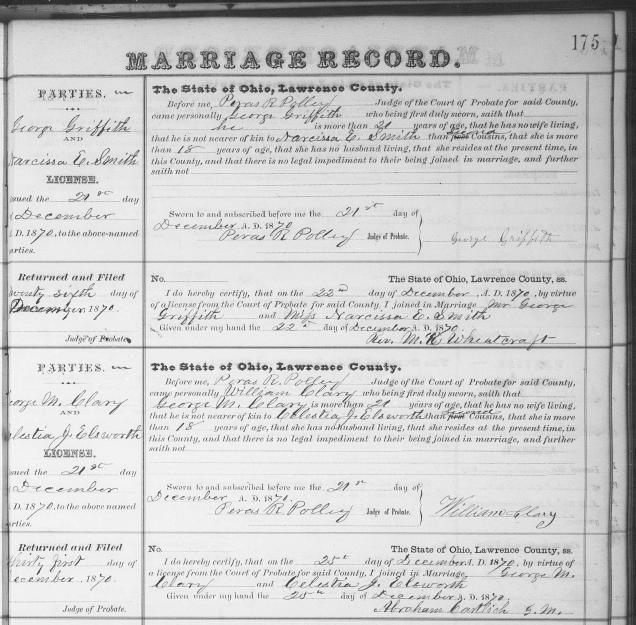 175
MARRIAGE RECORD.
PARTIES.
George Griffith
AND
Narcissa E. Smith
LICENSE.
ssued the 21st day
December
D. 1870, to the above-named
arties.
The State of Ohio, Lawrence County.
Before me, Peras R Polley Judge of the Court of Probate for said County,
came personally George Griffith who being first duly sworn, saith that
he is more than 21 years of age, that he has no wife living,
that he is not nearer of kin to Narcissa E. Smith than Cousins, that she is more
than 18 years of age, that she has no husband living, that she resides at the present time, in
this County, and that there is no legal impediment to their being joined in marriage, and further
saith not
Sworn to and subscribed before me the 21st day of
December A. D. 1870
Peras R Polley Judge of Probate.
George Griffith
Returned and Filed
wenty sixth day of
December, 1870.
Judge of Probate
No. The State of Ohio, Lawrence County, ss.
I do hereby certify, that on the 22nd day of December, A. D. 1870, by virtue
of a license from the Court of Probate for said County, I joined in Marriage Mr George
Griffith and Miss Narcissa E. Smith
Given under my hand the 22nd day of December A. D. 1870.
Rev. M. K Wheatcraft
PARTIES.
eorge M. Clary
AND
elestia J. Elsworth
LICENSE.
ssued the 21st day
December
D. 1870, to the above-named
arties.
The State of Ohio, Lawrence County.
Before me, Peras R. Polley Judge of the Court of Probate for said County,
came personally William Clary who being first duly sworn, saith that
George M. Clary is more than 21 years of age, that he has no wife living,
that he is not nearer of kin to Celestia J. Elsworth than Cousins, that she is more
than 18 years of age, that she has no husband living, that she resides at the present time, in
this County, and that there is no legal impediment to their being joined in marriage, and further
saith not
Sworn to and subscribed before me the 21st day of
December A. D. 1870.
Peras R Polley Judge of Probate.
William Clary
Returned and Filed
hirty first day of
ecember, 1870.
Judge of Probate.
No. The State of Ohio, Lawrence County, ss.
I do hereby certify, that on the 25th day of December A. D. 1870, by virtue of
a license from the Court of Probate for said County, I joined in Marriage George M.
Clary and Celestia J. Elsworth
Given under my hand the 25th day of December A. D. 1870.
Abraham Cartlich